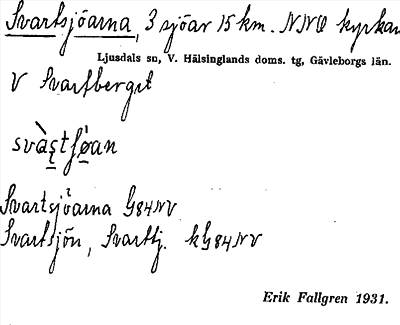 Svartsjöarna, 3 sjöar 15 km. NNO kyrkan
Ljusdals sn, V. Hälsinglands doms. tg, Gävleborgs län.
V Svartberget
Svartsjöarna G84NV
Svartsjön, Svarttj. kG84NV
Erik Fallgren 1931.